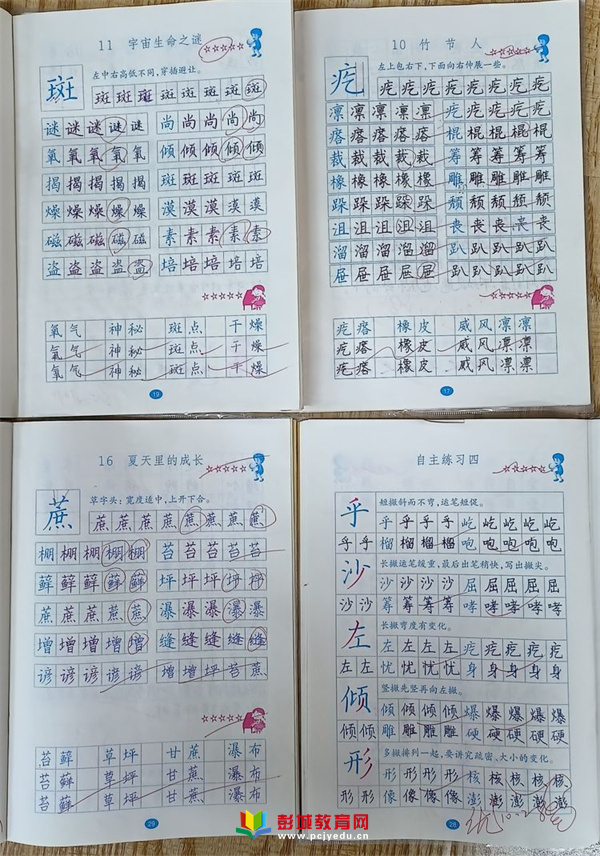 11 宇宙生命之谜
左中右高低不同,穿插避让。
斑 斑 斑 斑 斑 斑 斑 斑
谜 谜 谜 谜 谜 尚 尚 尚 尚 尚
氧 氧 氧 氧 氧 倾 倾 倾 倾 倾
揭 揭 揭 揭 揭 斑 斑 斑 斑 斑
燥 燥 燥 燥 燥 漠 漠 漠 漠 漠
磁 磁 磁 磁 磁 素 素 素 素 素
盗 盗 盗 盗 盗 培 培 培 培 培
氧气 神秘 斑点 干燥
氧气 神秘 斑点 干燥
氧气 神秘 斑点 干燥
19
10 竹节人
左上包右下,下面向右伸展一些。
疙 疙 疙 疙 疙 疙 疙 疙
凛 凛 凛 凛 凛 疙 疙 疙 疙 疙
瘩 瘩 瘩 瘩 瘩 棍 棍 棍 棍 棍
裁 裁 裁 裁 裁 筹 筹 筹 筹 筹
橡 橡 橡 橡 橡 雕 雕 雕 雕 雕
跺 跺 跺 跺 跺 颓 颓 颓 颓 颓
沮 沮 沮 沮 沮 丧 丧 丧 丧 丧
溜 溜 溜 溜 溜 趴 趴 趴 趴 趴
屉 屉 屉 屉 屉 趴 趴 趴 趴 趴
疙瘩 橡皮 威风凛凛
疙瘩 橡皮 威风凛凛
疙瘩 橡皮 威风凛凛
17
16 夏天里的成长
草字头:宽度适中,上开下合。
蔗 蔗 蔗 蔗 蔗 蔗 蔗 蔗
棚 棚 棚 棚 棚 苔 苔 苔 苔 苔
藓 藓 藓 藓 藓 坪 坪 坪 坪 坪
蔗 蔗 蔗 蔗 蔗 瀑 瀑 瀑 瀑 瀑
增 增 增 增 增 缝 缝 缝 缝 缝
谚 谚 谚 谚 谚 增 增 坪 苔 蔗
苔藓 草坪 甘蔗 瀑布
苔藓 草坪 甘蔗 瀑布
苔藓 草坪 甘蔗 瀑布
29
自主练习四
短撇斜而不弯,运笔短促。
乎 乎 乎 乎 乎 屹 屹 屹 屹 屹
乎 乎 榴 榴 榴 咆 咆 咆 咆
长撇运笔缓重,最后出笔稍快,写出撇尖。
沙 沙 沙 沙 沙 屈 屈 屈 屈 屈
沙 沙 筹 筹 筹 哮 哮 哮 哮
长撇弯度有变化。
左 左 左 左 左 疙 疙 疙 疙 疙
左 左 忧 忧 忧 身 身 身 身
竖撇先竖再向左撇。
倾 倾 倾 倾 倾 爆 爆 爆 爆 爆
倾 倾 御 御 御 硬 硬 硬 硬
多撇排列一起,要讲究疏密、大小的变化。
形 形 形 形 形 核 核 核 核 核
形 形 像 像 像 澎 澎 澎 澎
28
彭城教育网
www.pcjyedu.cn